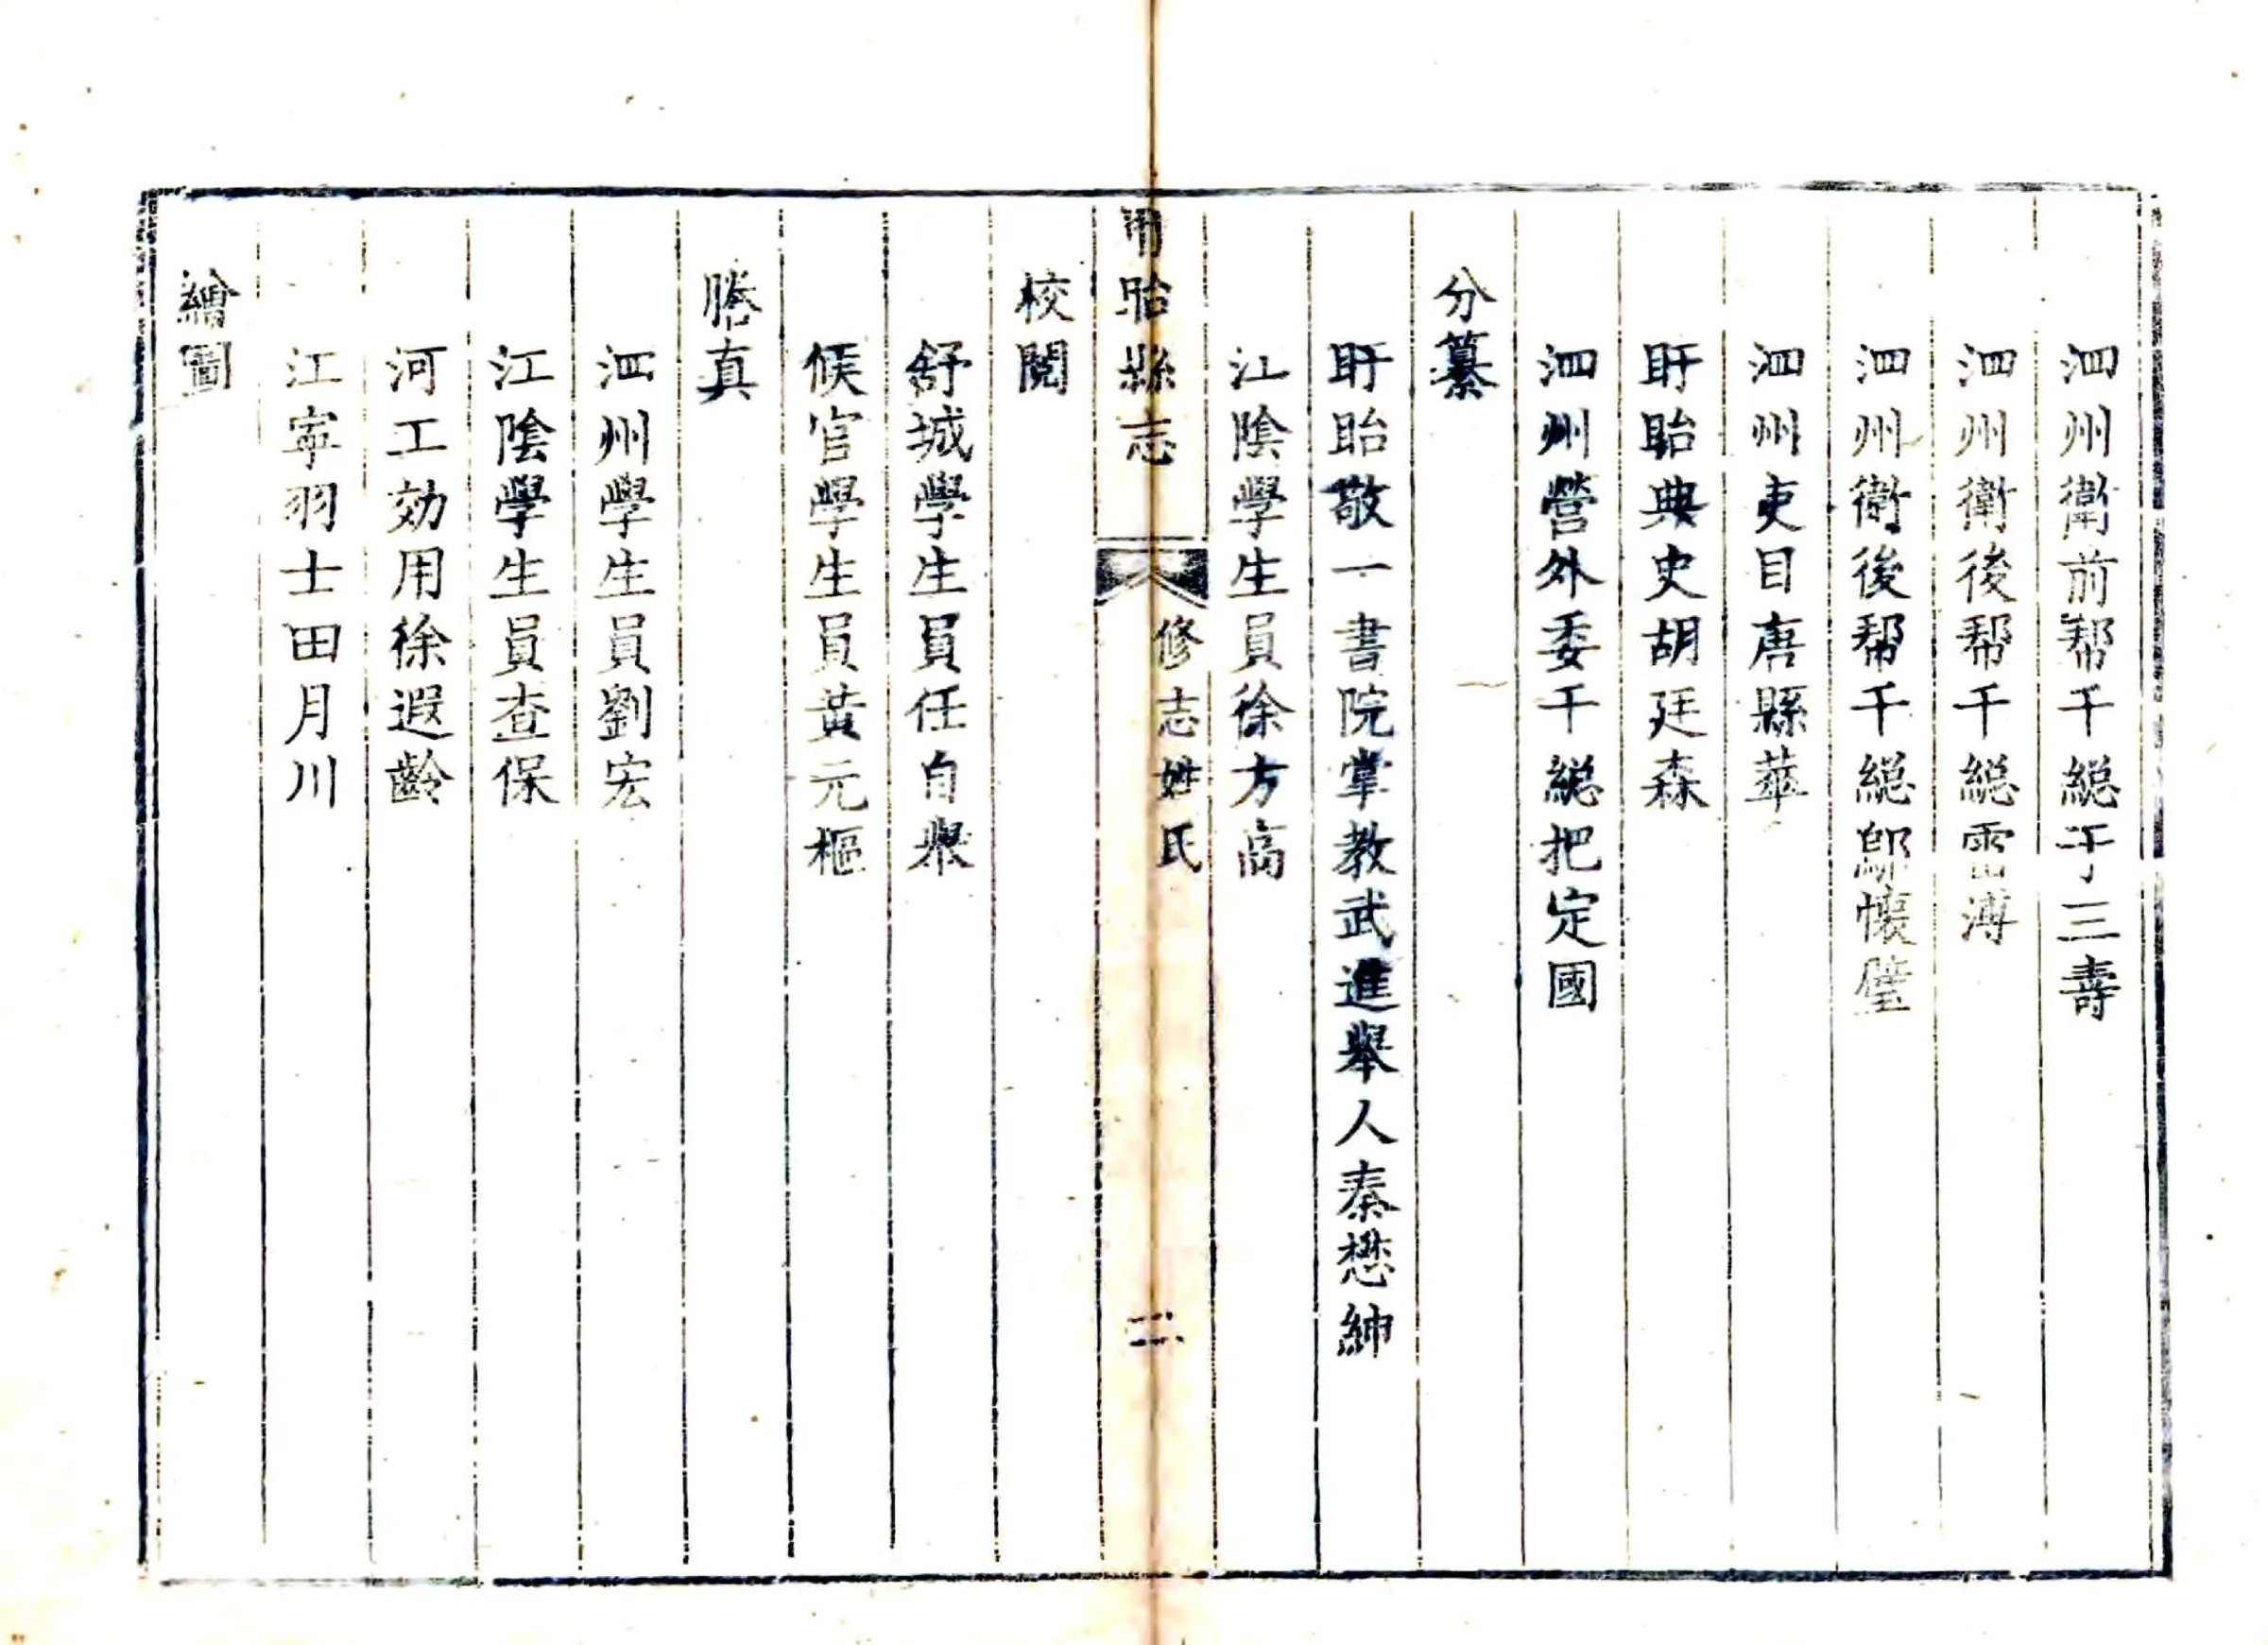 泗州衛前帮千總于三壽
泗州衛後帮千總雷溥
泗州衛後帮千總鄔懷璧
泗州吏目唐縣華
盱眙典史胡廷森
泗州營外委千總把定國
分纂
盱眙敬一書院掌教武進舉人秦懋紳
江陰學生員徐方高
盱眙縣志
修志姓氏
二
校閱
舒城學生員任自舉
候官學生員黃元樞
謄真
泗州學生員劉宏
江陰學生員查保
河工効用徐遐齡
江寧羽士田月川
繪圖